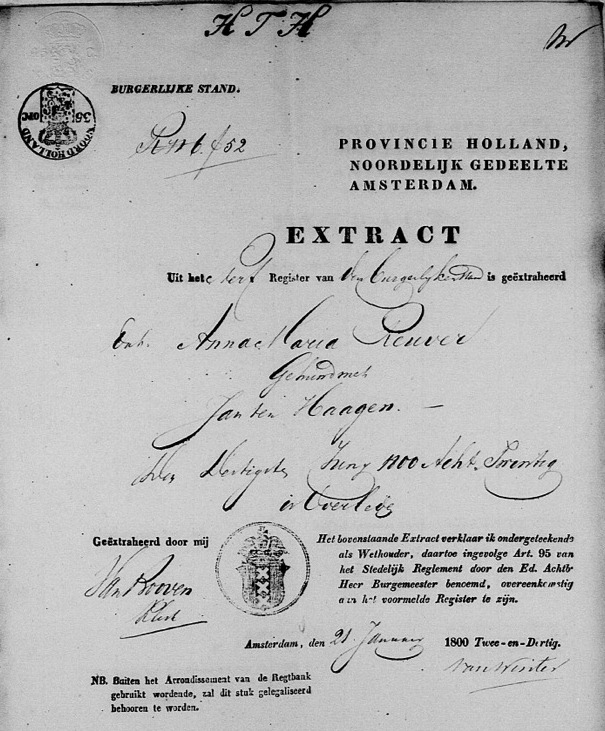 H T H
BURGERLIJKE STAND.
NOORD HOLLAND
R N 6. f 52
PROVINCIE HOLLAND,
NOORDELIJK GEDEELTE
AMSTERDAM.
EXTRACT
Uit het sterf Register van den burgerlijken stand is geëxtraheerd
dat. Anna Maria Reuver
Gehuwd met
Jan ten Haagen. —
den Dertigste Juny 1800 Acht Twentig
is Overleden
Geëxtraheerd door mij
Het bovenstaande Extract verklaar ik ondergeteekende
als Wethouder, daartoe ingevolge Art. 95 van
het Stedelijk Reglement door den Ed. Achtb
Heer Burgemeester benoemd, overeenkomstig
aan het voormelde Register te zijn.
Van Rooven
Amsterdam, den 21 January 1800 Twee-en-Dertig.
Van Winter
NB. Buiten het Arrondissement van de Regtbank
gebruikt wordende, zal dit stuk gelegaliseerd
behooren te worden.